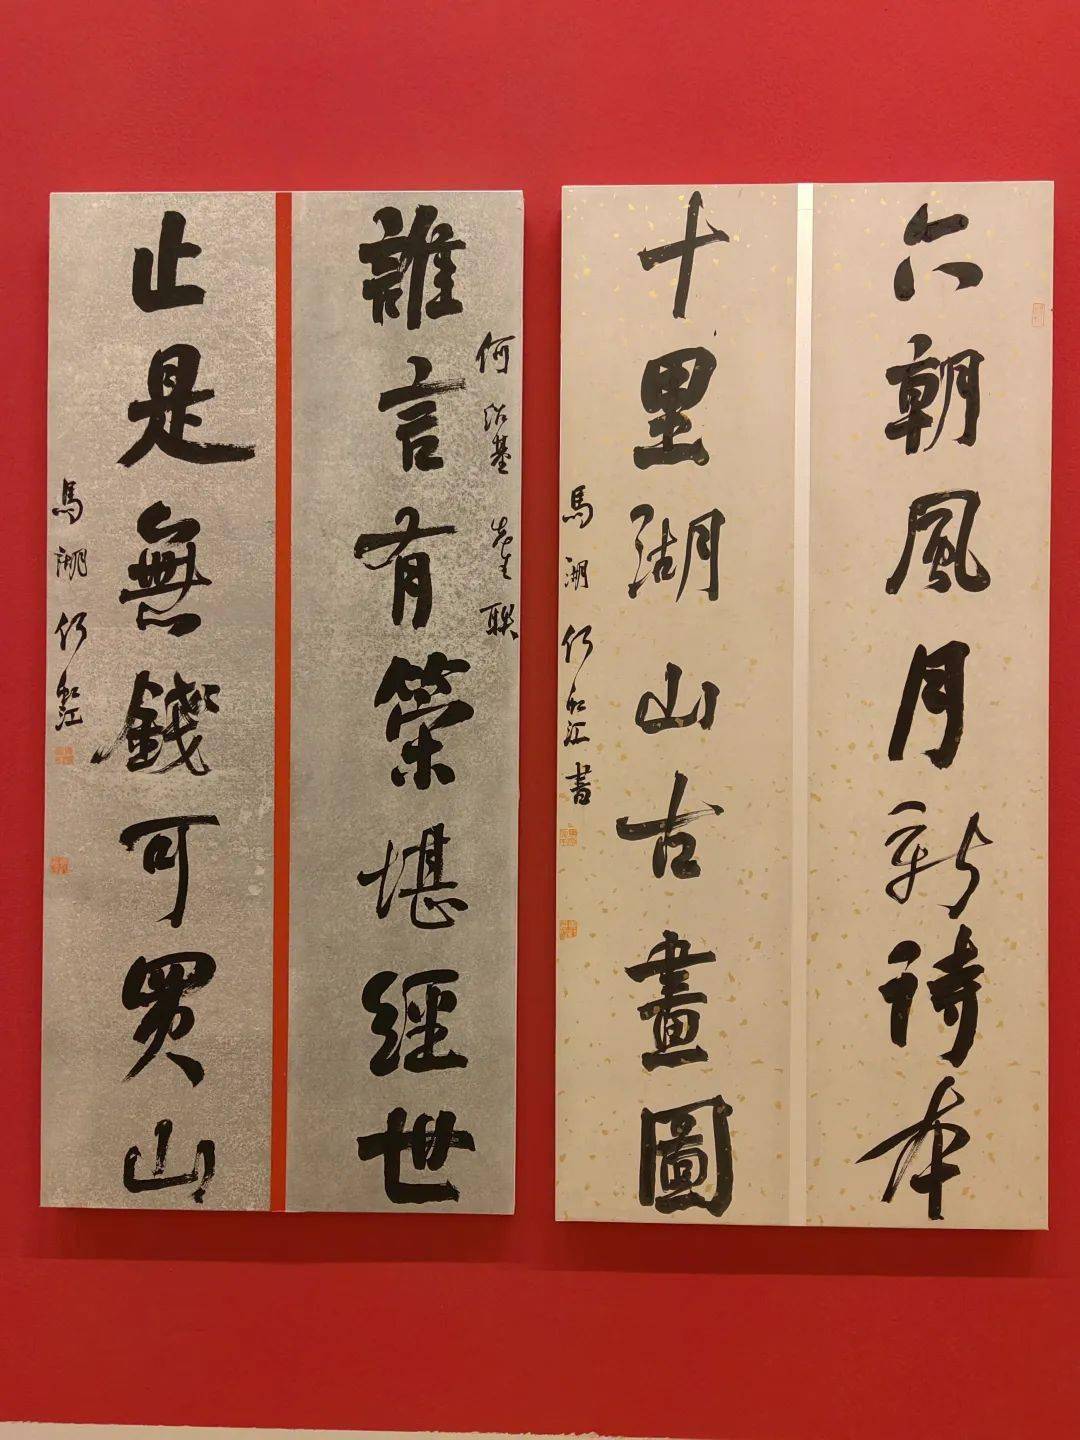 六朝風月新詩本
十里湖山古畫圖
馬湖 江書
誰言有策堪經世
何紹基先生聯
止是無錢可買山
馬湖 江